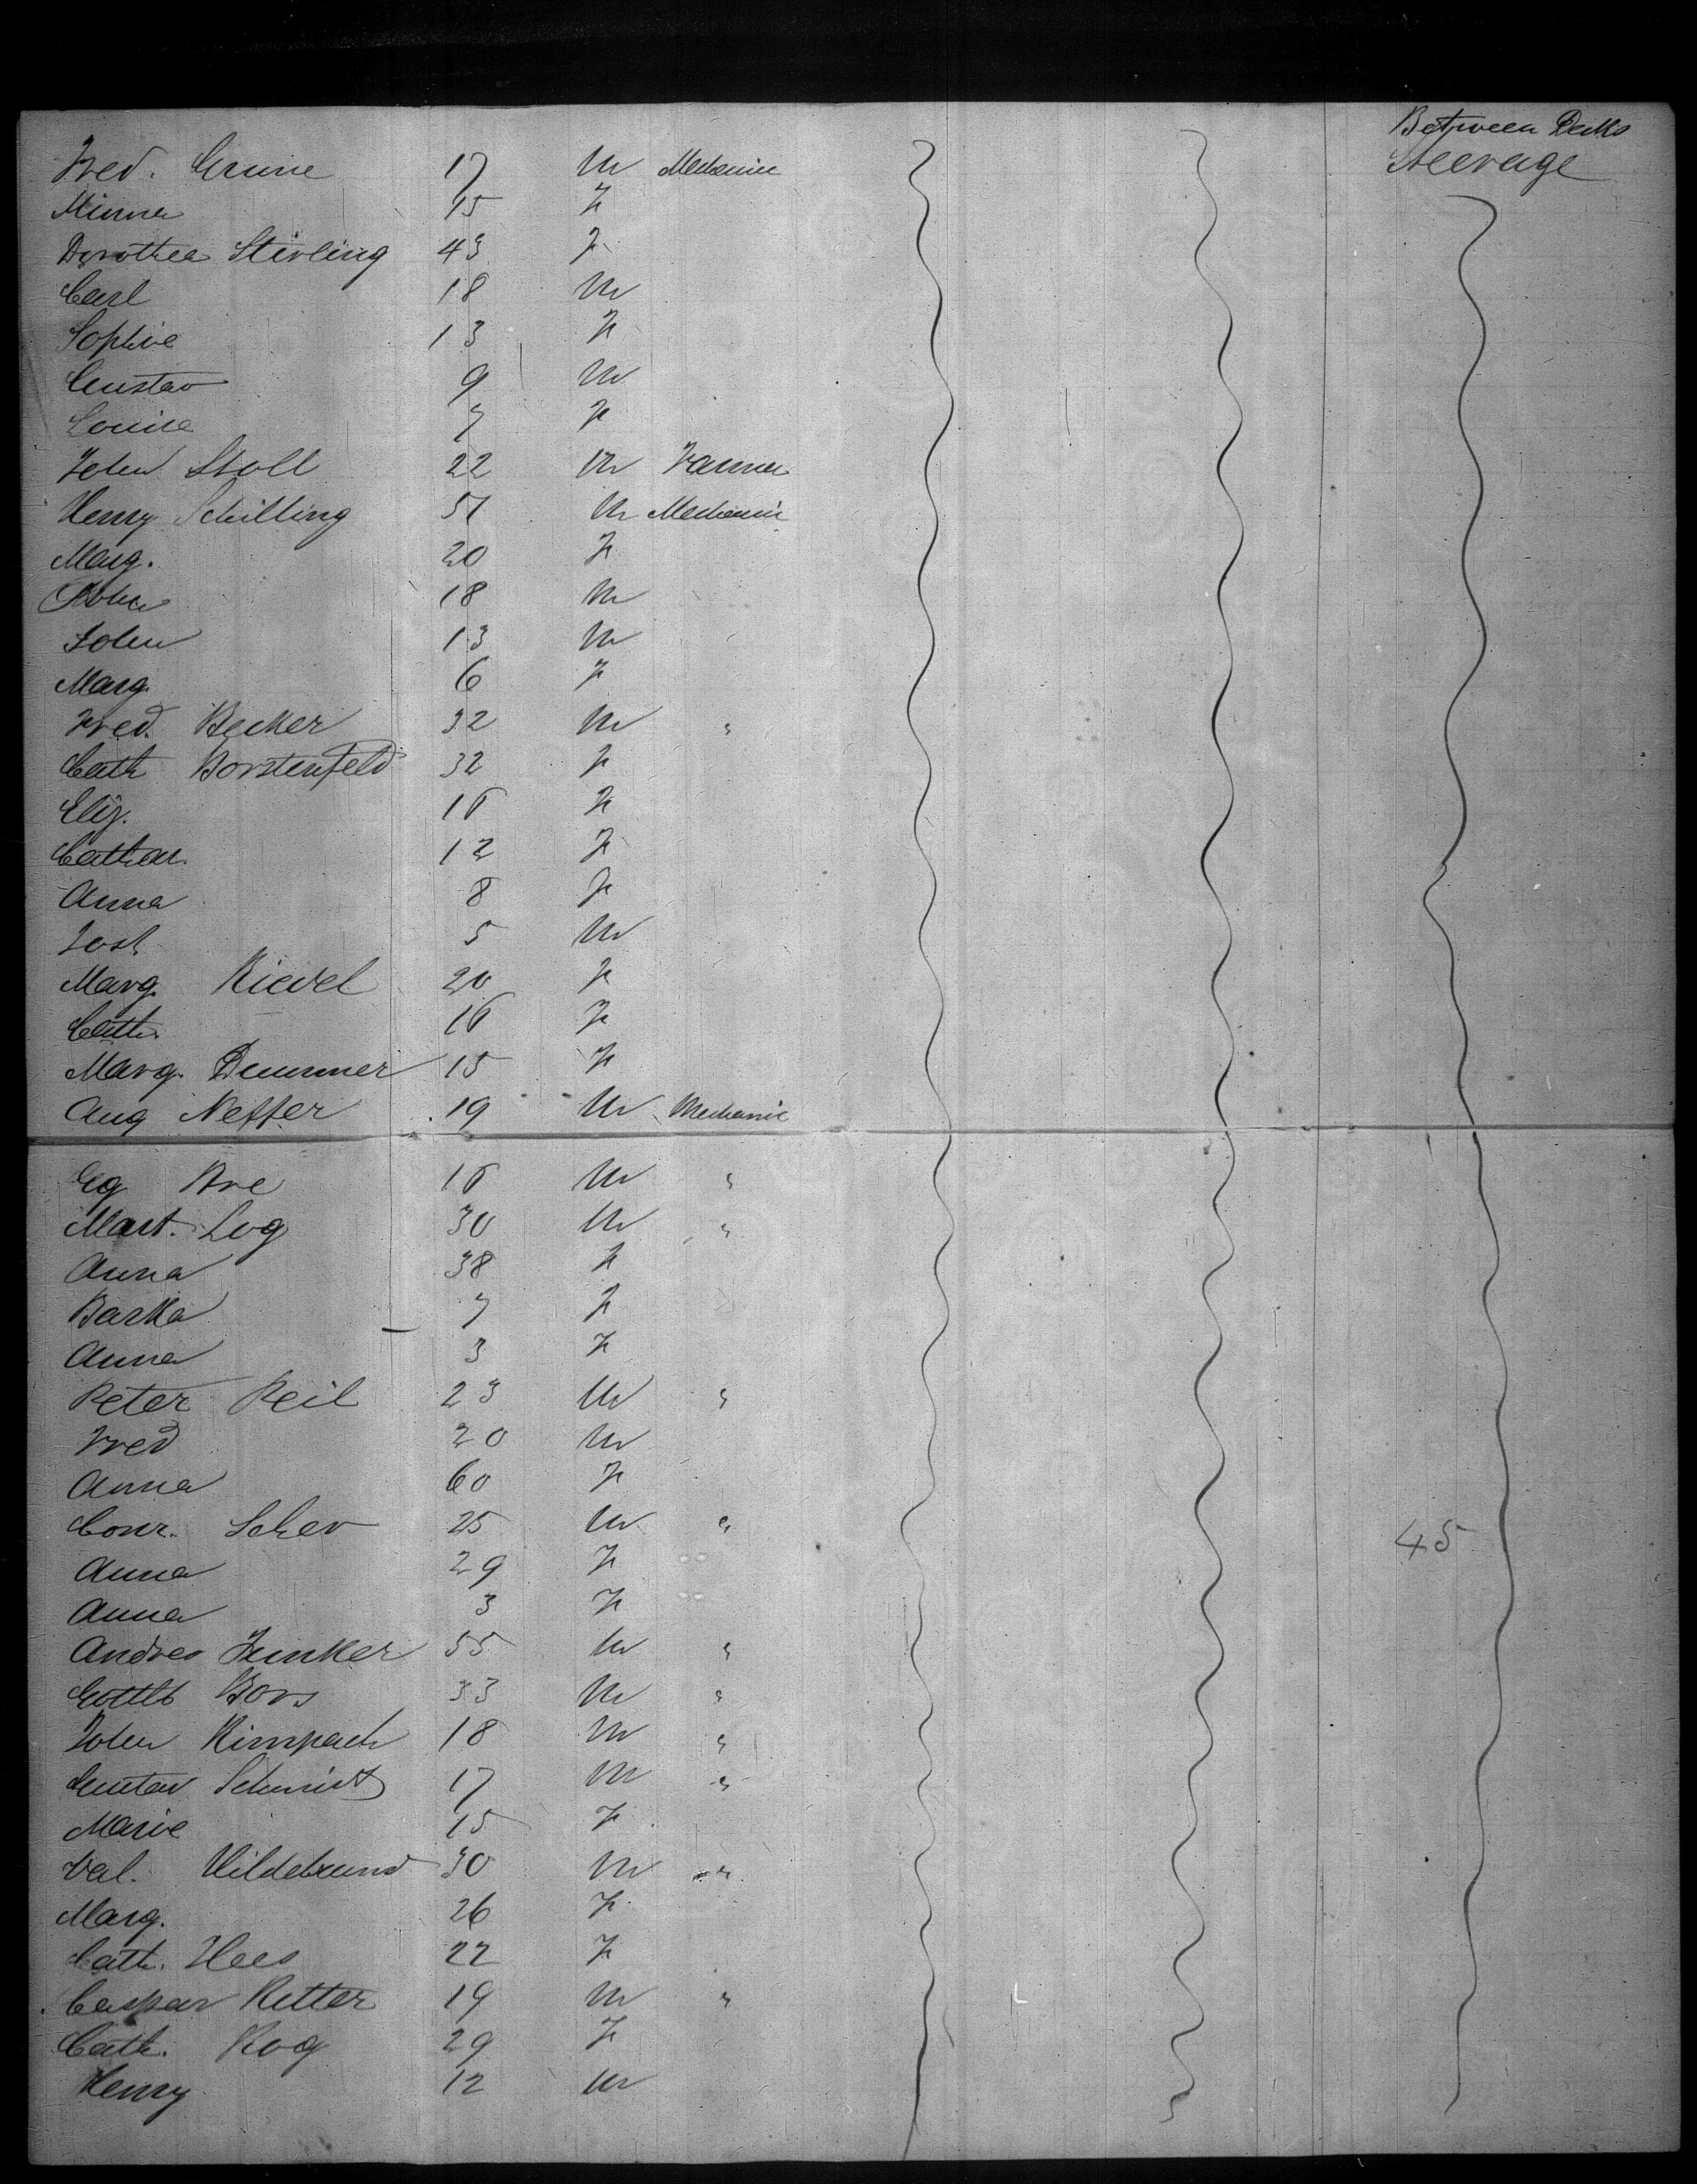 Between Decks
Fred. Grune 17 M Mechanic Steerage
Minna 15 F
Dorothea Stirling 43 F
Carl 18 M
Sophie 13 F
Gustav 9 M
Louise 7 F
John Stoll 22 M Farmer
Henry Schilling 51 M Mechanic
Marg. 20 F
18 M
John 13 M
Marg. 6 F
Fred. Becker 32 M "
Cath Borstenfeld 32 F
Eliz. 16 F
Cathar. 12 F
Anna 8 F
Jost 5 M
Marg. Riedel 20 F
Cath. 16 F
Marg. Dummer 15 F
Aug Neffer 19 M Mechanic
16 M "
Mart. Log 30 M "
Anna 38 F
Barba 7 F
Anna 3 F
Peter Reil 23 M "
Fred 20 M
Anna 60 F
Conr. Scher 25 M "
Anna 29 F 45
Anna 3 F
Andres Junker 55 M "
Gottlb Bors 33 M "
John Kimpach 18 M "
Gustav Schmidt 17 M "
Marie 15 F
Val. Hildebrand 30 M "
Marg. 26 F
Cath. Hees 22 F
Caspar Retter 19 M "
Cath. Rog 29 F
Henry 12 M